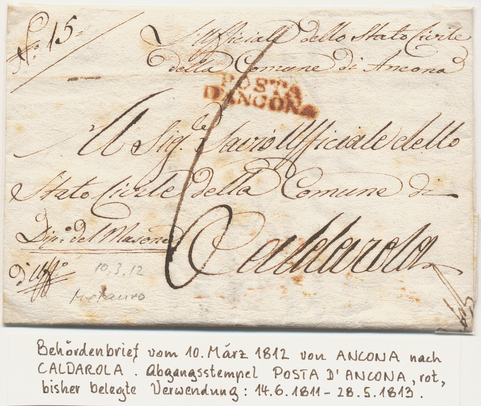 No. 15
L'Uffiziale dello Stato Civile
della Comune di Ancona
POSTA
D'ANCONA
Al Sig.re
Uffiziale dello
Stato Civile della Comune di
Caldarola
Dip.o del
di Uff.o
10.3.12
Metauro
Behördenbrief vom 10. März 1812 von ANCONA nach
CALDAROLA. Abgangsstempel POSTA D'ANCONA, rot,
bisher belegte Verwendung: 14.6.1811 - 28.5.1813.